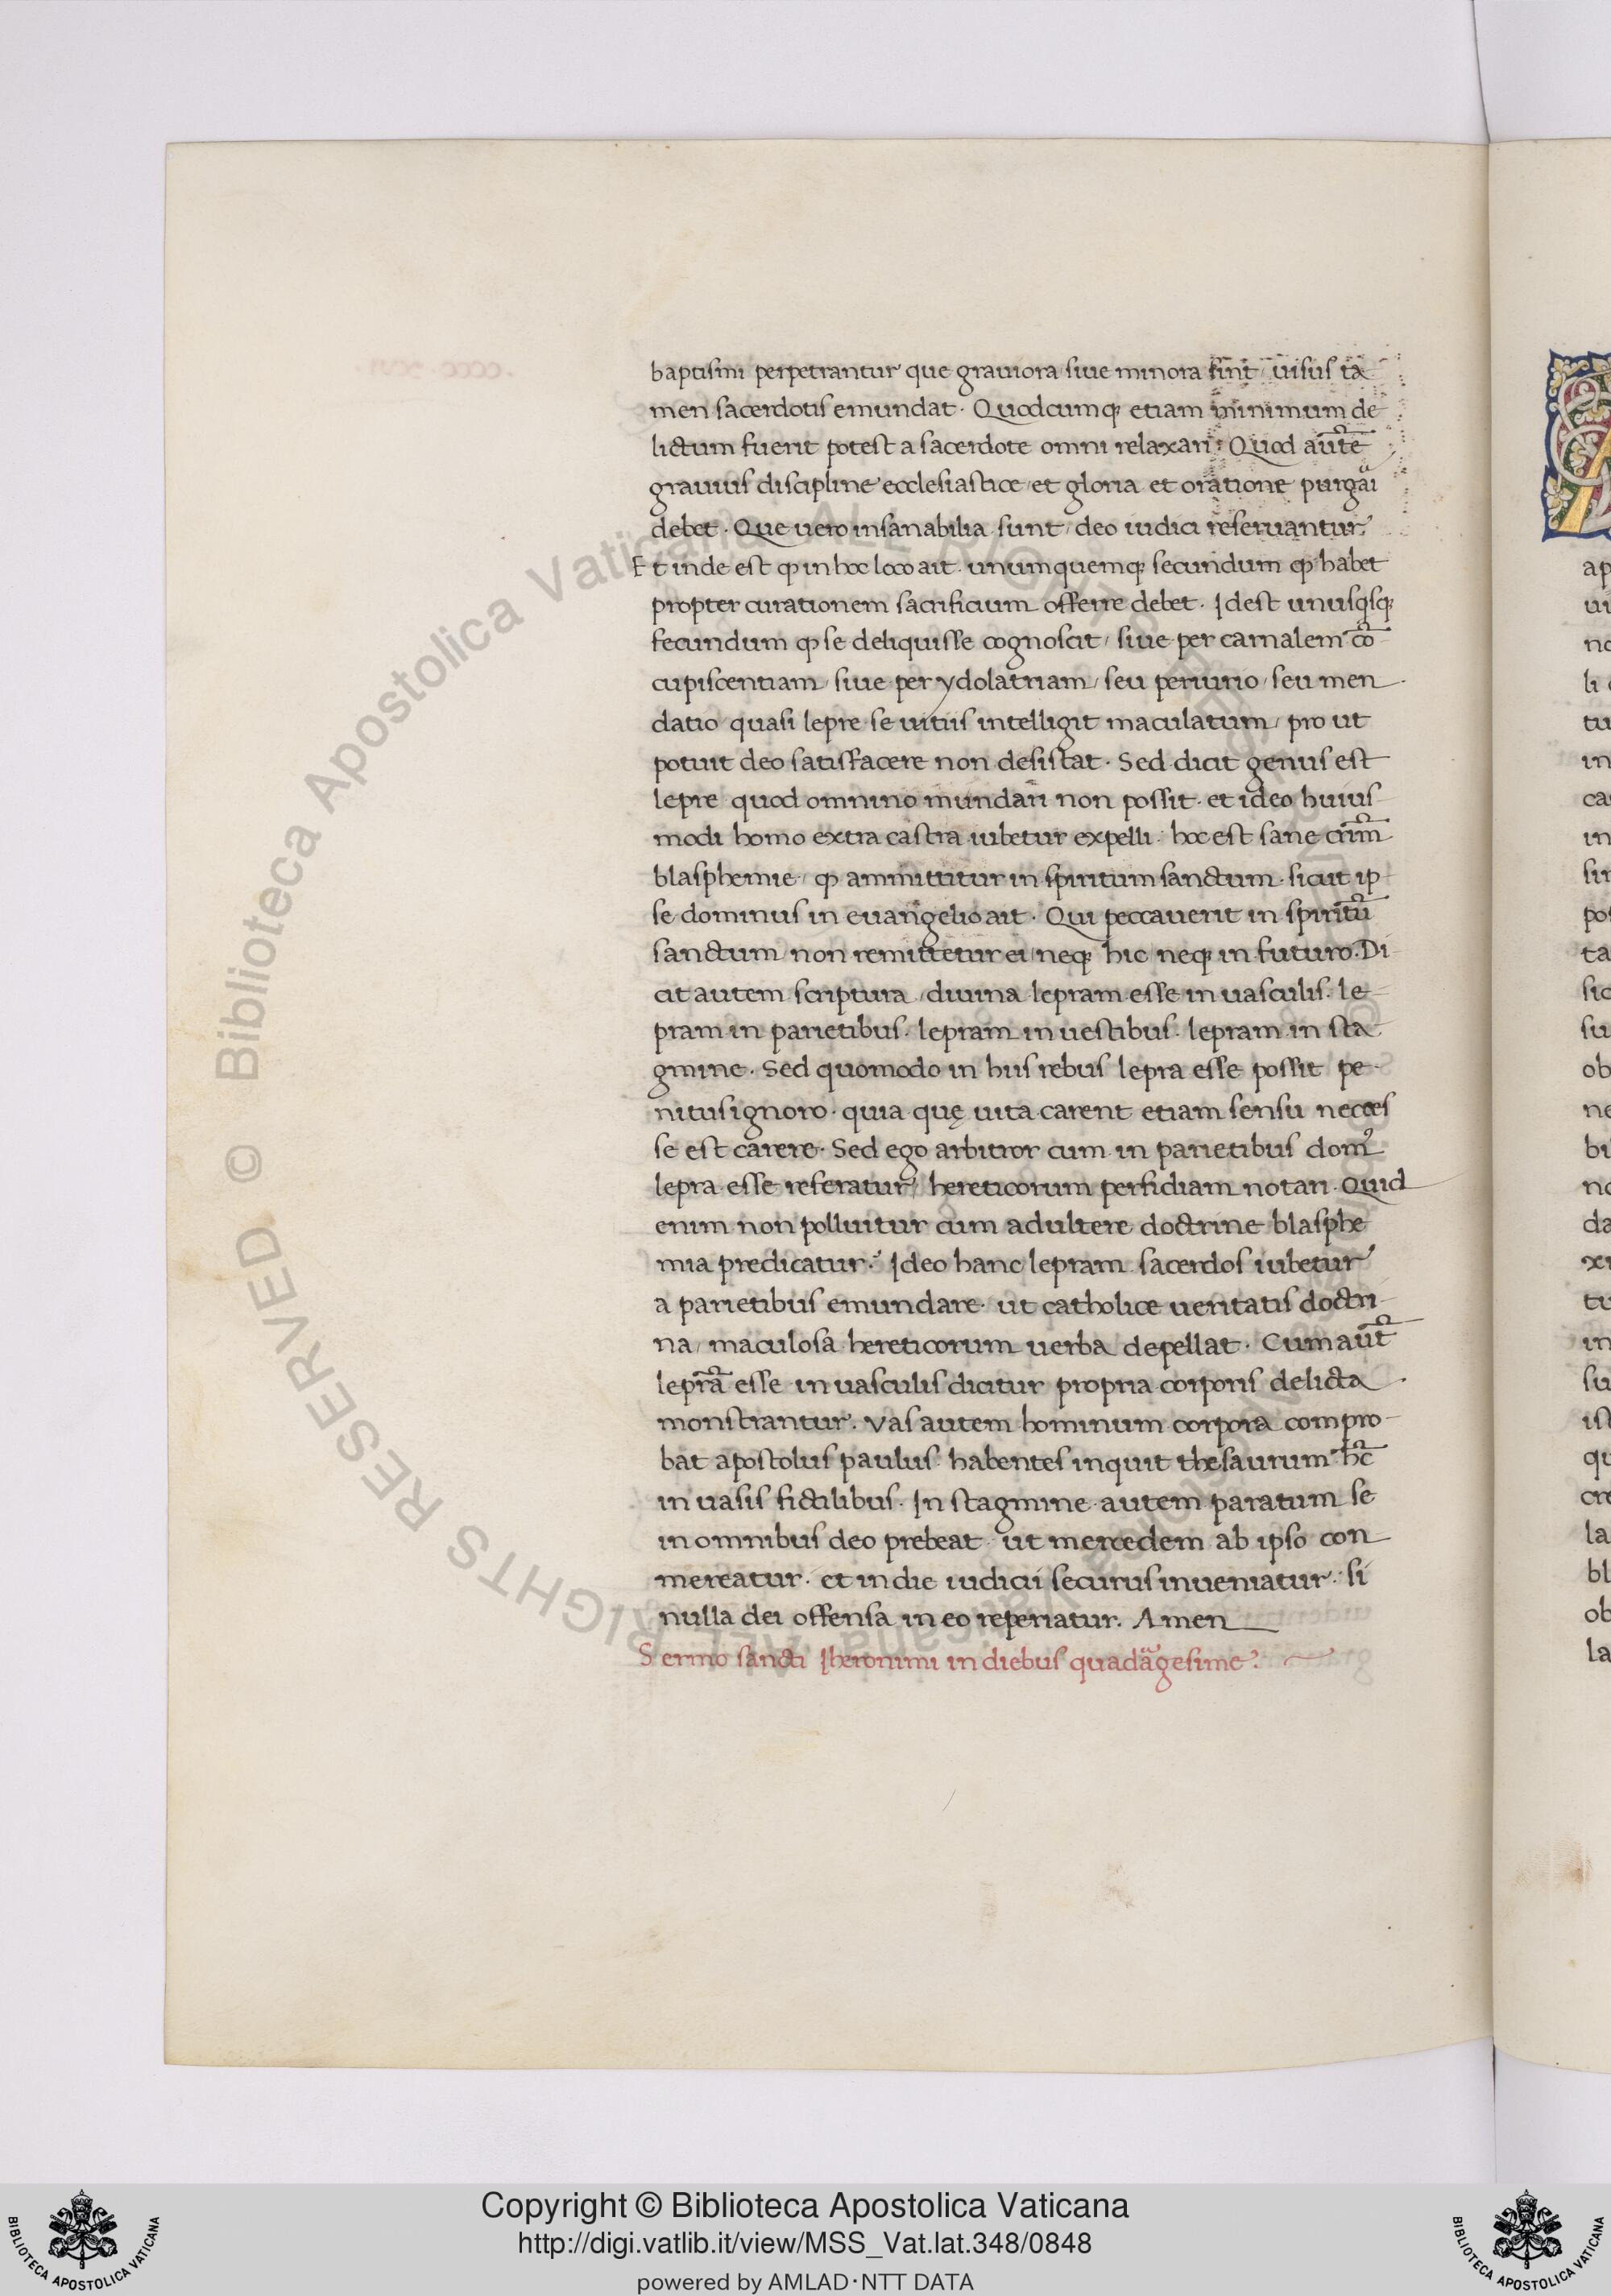 baptismi perpetrantur que grauiora siue minora sint / uisus tā
men sacerdotis emundat · Quodcumqꝫ etiam minimum de
lictum fuerit potest a sacerdote omni relaxari · Quod autē
grauius discipline ecclesiastice / et gloria et oratione purgaī
debet · Que uero insanabilia sunt / deo iudici reseruantur ·
Et inde est ꝙ in hoc loco ait · unumquemqꝫ secundum ꝙ habet
propter curationem sacrificium offerre debet · Idest unusqsqꝫ
secundum ꝙ se deliquisse cognoscit / siue per carnalem cō
cupiscentiam / siue per ydolatriam / seu periurio / seu men
datio quasi lepre se uitiis intelligit maculatum / pro ut
potuit deo satisfacere non desistat · Sed dicit genus est
lepre quod omnino mundari non possit · et ideo huius
modi homo extra castra iubetur expelli · hoc est sane crim̄
blasphemie / ꝙ ammittitur in spiritum sanctum · sicut ip
se dominus in euangelio ait · Qui peccauerit in spiritū
sanctum / non remittetur ei / neqꝫ hic / neqꝫ in futuro · Di
cit autem scriptura / diuina lepram esse in uasculis · le
pram in parietibus · lepram in uestibus · lepram in sta
gmine · Sed quomodo in hiis rebus lepra esse possit pe
nitus ignoro · quia quę uita carent etiam sensu necces
se est carere · Sed ego arbitror cum in parietibus domꝰ
lepra esse referatur / hereticorum perfidiam notari · Quid
enim non polluitur cum adultere doctrine blasphe
mia predicatur · Ideo hanc lepram sacerdos iubetur
a parietibus emundare · ut catholice ueritatis doctri
na / maculosa hereticorum uerba depellat · Cum aut̄
leprā esse in uasculis dicitur propria corporis delicta
monstrantur · Vas autem hominum corpora compro
bat apostolus paulus · habentes inquit thesaurum hc̄
in uasis fictilibus · In stagmine autem paratum se
in omnibus deo prebeat · ut mercedem ab ipso con
mereatur · et in die iudicii securus inueniatur · si
nulla dei offensa in eo reperiatur · Amen
Sermo sancti Iheronimi in diebus quadāgesime ·
ap
ui
no
li
tu
in
ca
in
sin
pos
ta
sic
su
ob
ne
bi
no
da
xi
tu
in
su
ist
qu
cre
la
bl
ob
la
© Biblioteca Apostolica Vaticana ALL RIGHTS RESERVED
Copyright © Biblioteca Apostolica Vaticana
http://digi.vatlib.it/view/MSS_Vat.lat.348/0848
powered by AMLAD·NTT DATA
BIBLIOTECA APOSTOLICA VATICANA
BIBLIOTECA APOSTOLICA VATICANA